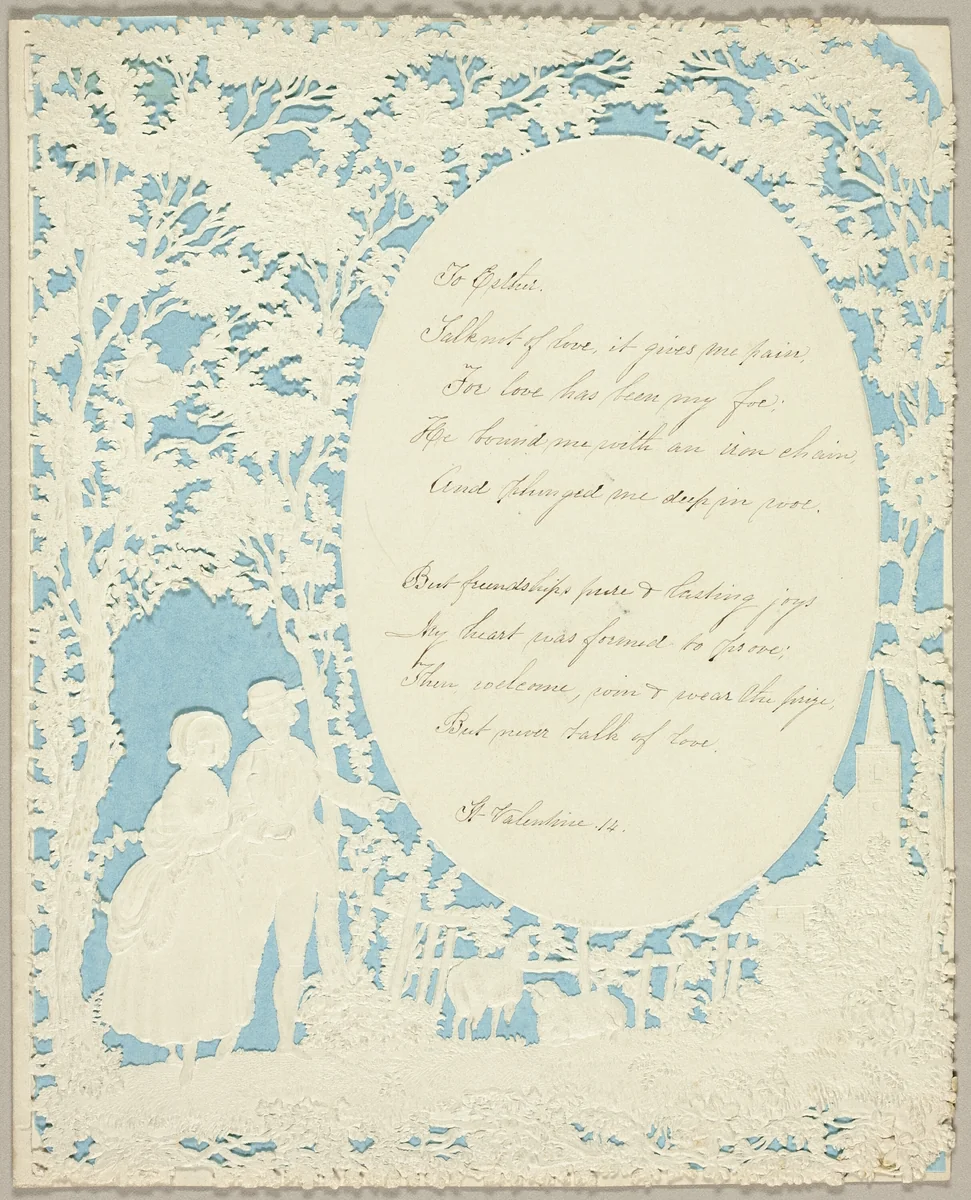 To Esther.
Talk not of love, it gives me pain,
For love has been my foe;
He bound me with an iron chain,
And plunged me deep in woe.
But friendships pure & lasting joys
My heart was formed to prove;
Then welcome, win & wear the prize,
But never talk of love.
St Valentine .14.